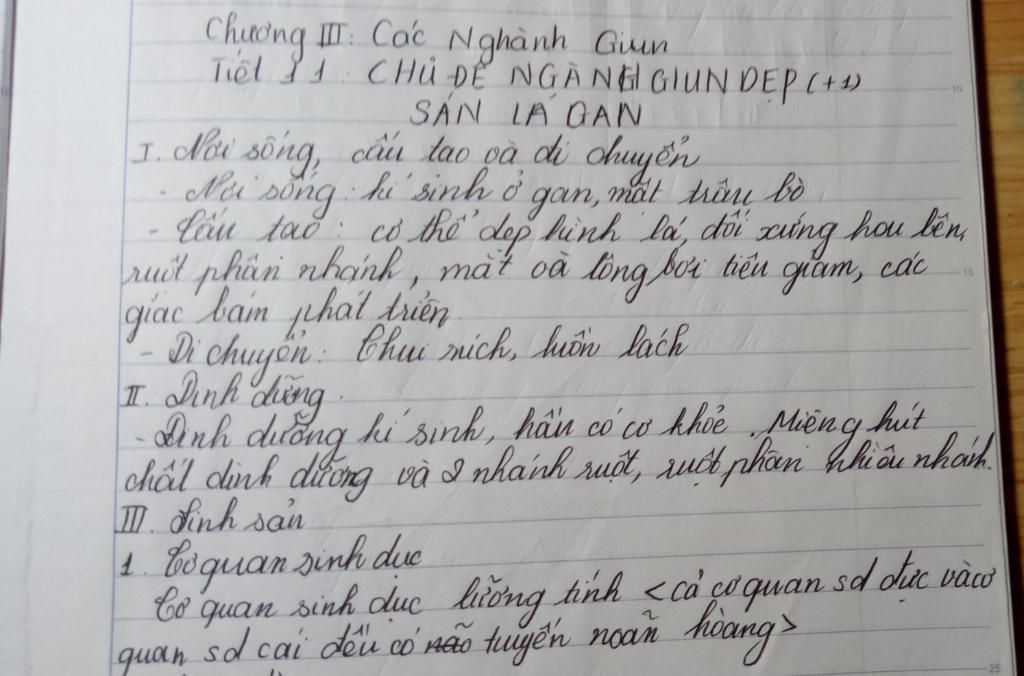 Chương III: Các Nghành Giun
Tiết 11 CHỦ ĐỀ NGÀNH GIUN DẸP (+1)
SÁN LÁ GAN
I. Nơi sống, cấu tạo và di chuyển
- Nơi sống: kí sinh ở gan, mật trâu bò
- Cấu tạo: cơ thể dẹp hình lá, đối xứng hai bên,
ruột phân nhánh, mắt và lông bơi tiêu giảm, các
giác bám phát triển
- Di chuyển: Chui rúch, luồn lách
II. Dinh dưỡng.
- Dinh dưỡng kí sinh, hầu có cơ khỏe. Miệng hút
chất dinh dưỡng và 2 nhánh ruột, ruột phân nhiều nhánh.
III. Sinh sản
1. Cơ quan sinh dục
Cơ quan sinh dục lưỡng tính < cả cơ quan sd đực và cơ
quan sd cái đều có não tuyến noãn hoàng>
19
15
25